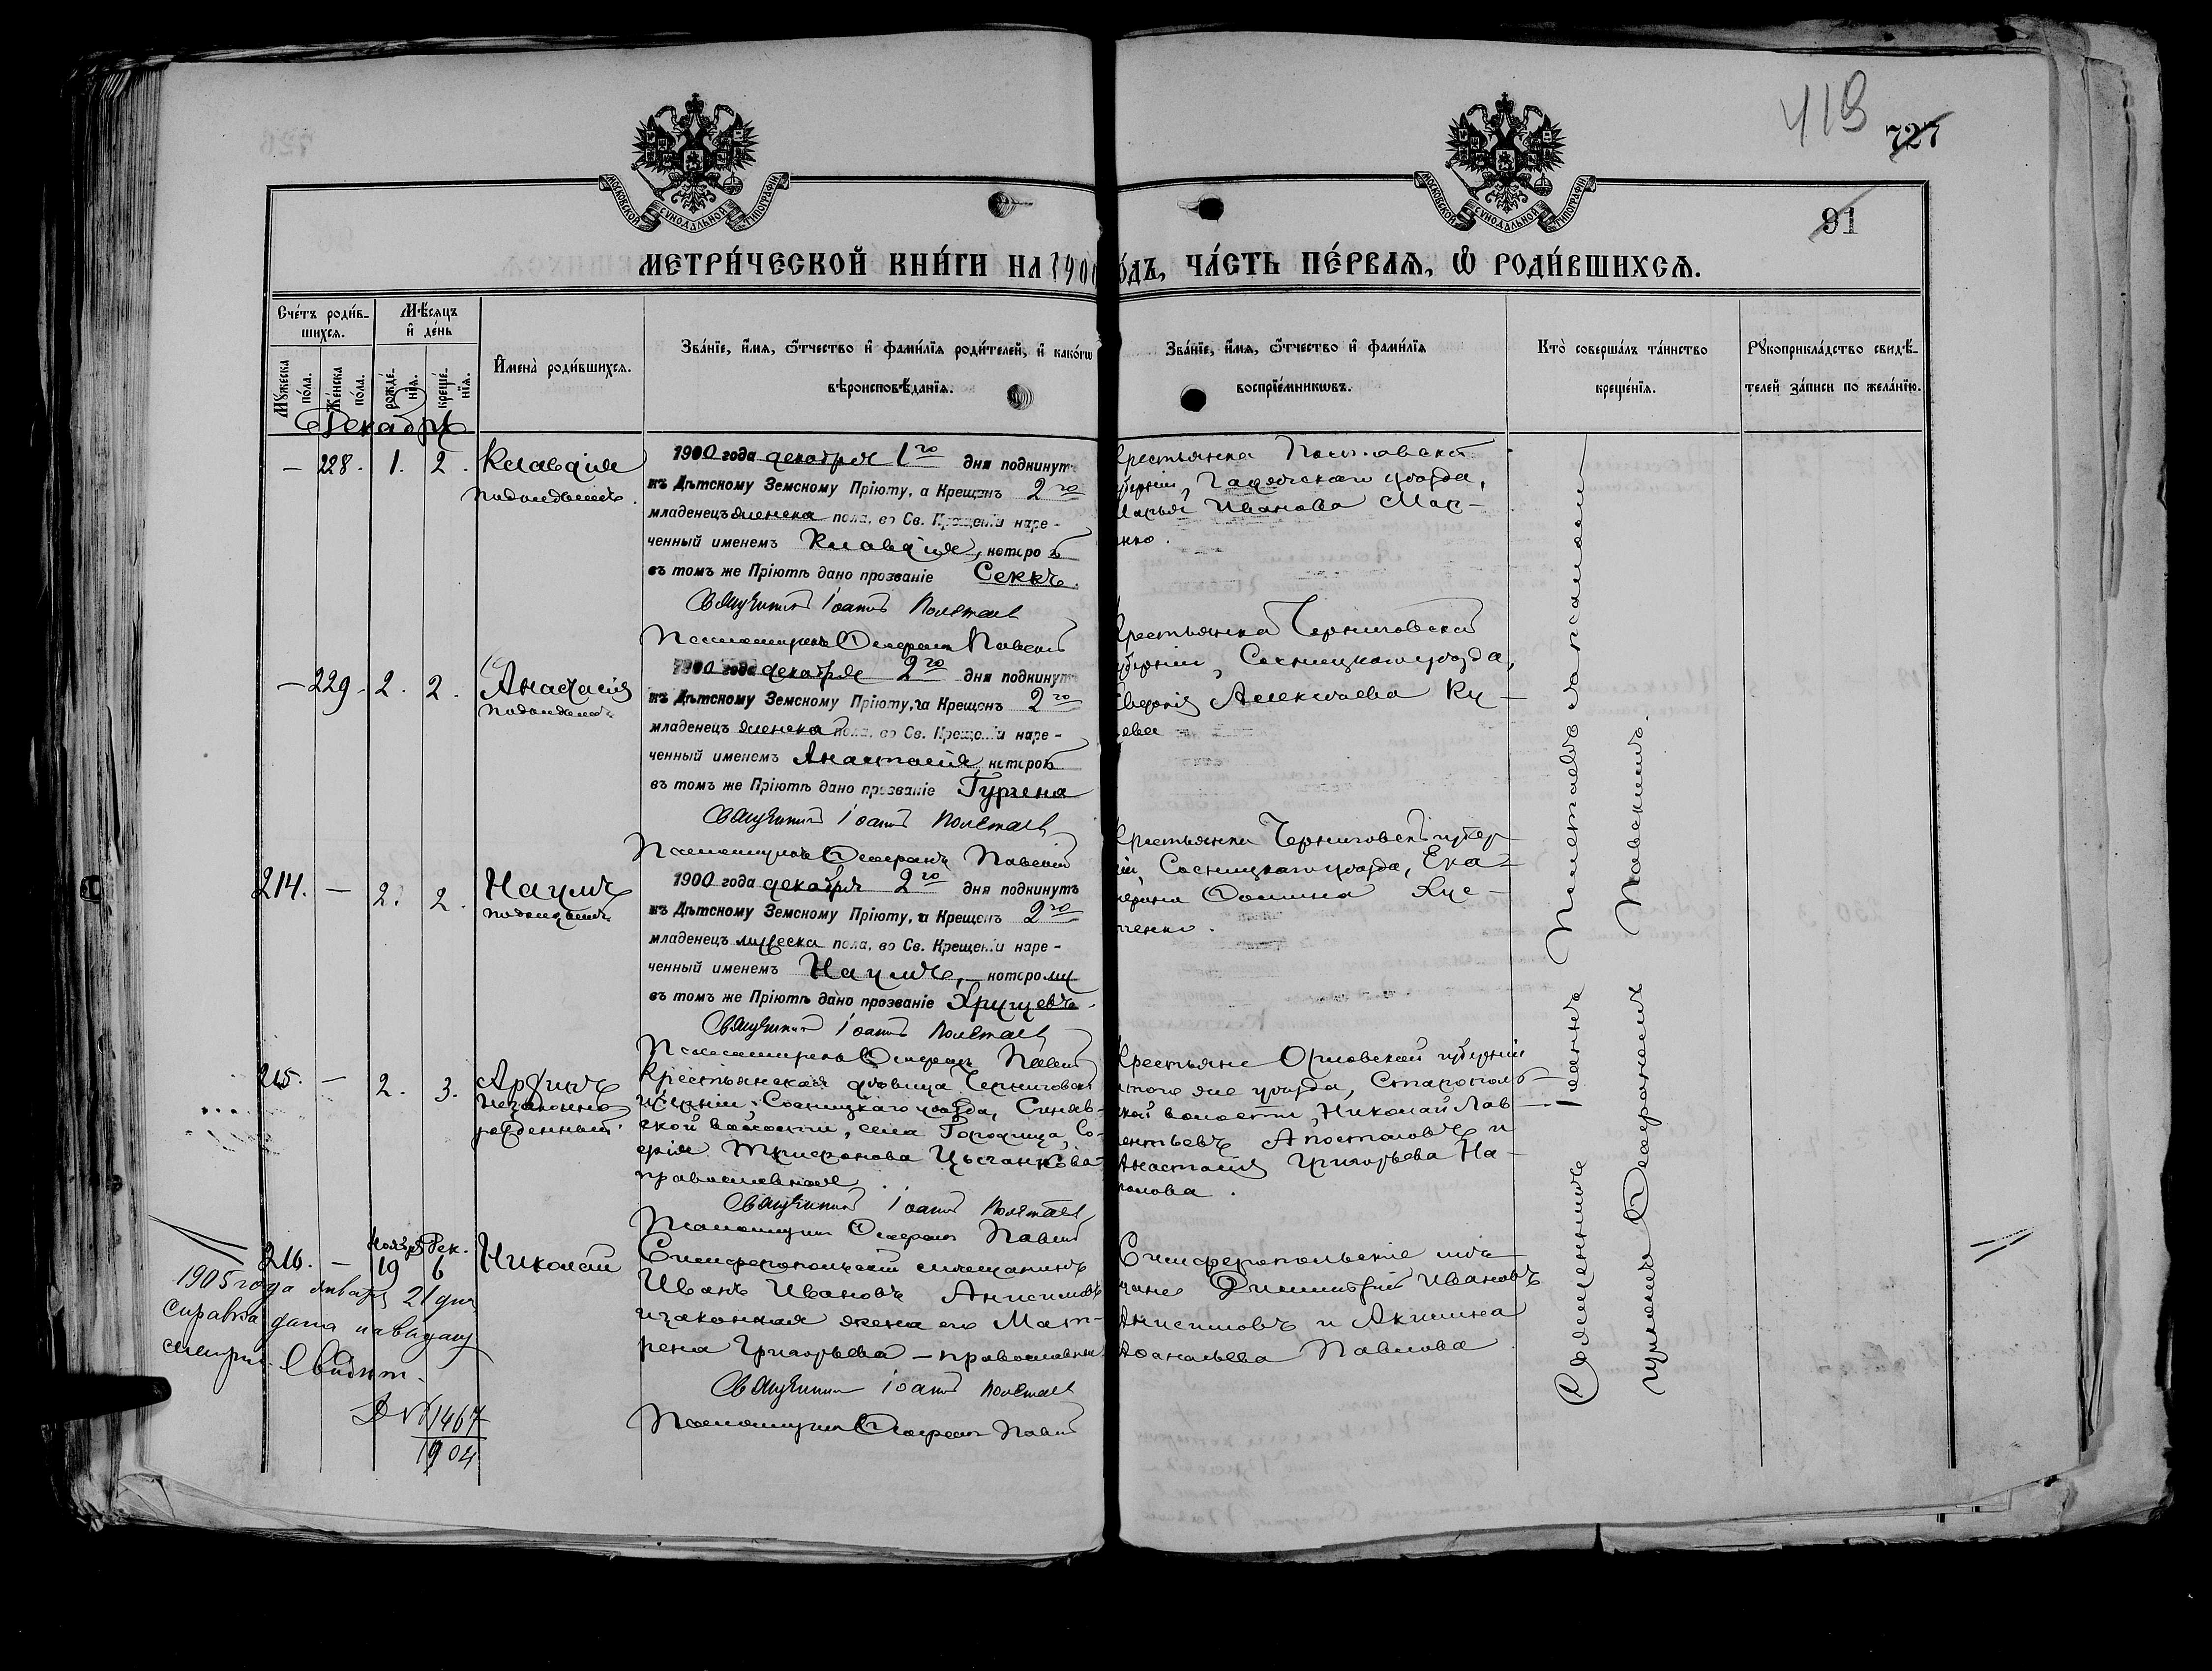 419
727
91
МОСКОВСКОЙ СѴНОДАЛЬНОЙ ТИПОГРАФІИ
МОСКОВСКОЙ СѴНОДАЛЬНОЙ ТИПОГРАФІИ
МЕТРИ́ЧЕСКОЙ КНИ́ГИ НА 1900
о́дъ, ЧА́СТЬ ПЕ́РВАЯ, Ѿ РОДИ́ВШИХСЯ.
Сче́тъ роди́в-
шихся.
Мѣ́сяцъ
и҆ де́нь
Мꙋ́жеска
по́ла.
Же́нска
по́ла.
рожде́-
нїя.
креще́-
нїя.
И҆мена̀ роди́вшихся.
Зва́нїе, и҆́мя, ѻ҆́тчество и҆ фами́лїя роди́телей, и҆ како́гѡ
вѣроисповѣ́данїя.
Зва́нїе, и҆́мя, ѻ҆́тчество и҆ фами́лїя
воспрїе́мникѡвъ.
Кто̀ соверша́лъ та́инство
креще́нїя.
Рꙋкоприкла́дство свидѣ́-
телей за́писи по жела́нїю.
Декабрь
– 228. 1. 2. Клавдія
подкидышъ.
1900 года декабря 1го дня подкинут
къ Дѣтскому Земскому Пріюту, а Крещенъ 2го
младенецъ женска пола, во Св. Крещеніи наре-
ченный именемъ Клавдія, которой
въ томъ же Пріютѣ дано прозваніе Секкъ.
Священникъ Іоаннъ Полетаев
Псаломщикъ Павскій
Крестьянка Полтавской
губерніи, Гадячскаго уѣзда,
Марья Иванова Мас-
енко.
– 229. 2. 2. Анастасія
подкидышъ
1900 года декабря 2го дня подкинут
къ Дѣтскому Земскому Пріюту, а Крещенъ 2го
младенецъ женска пола, во Св. Крещеніи наре-
ченный именемъ Анастасія, которой
въ томъ же Пріютѣ дано прозваніе
Священникъ Іоаннъ Полетаев
Псаломщикъ Павскій
Крестьянка Черниговской
губерніи, Сосницкаго уѣзда,
Алексѣева Ку-
ева
214. – 2. 2. Наумъ
подкидышъ
1900 года декабря 2го дня подкинутъ
къ Дѣтскому Земскому Пріюту, а Крещенъ 2го
младенецъ мужеска пола, во Св. Крещеніи наре-
ченный именемъ Наумъ, которому
въ томъ же Пріютѣ дано прозваніе Хрущевъ.
Священникъ Іоаннъ Полетаев
Псаломщикъ Павскій
Крестьянка Черниговск губер
ніи, Сосницкаго уѣзда, Ека-
терина Фомина Яце-
ченко.
215. – 2. 3.
незаконно
рожденный.
Крестьянская дѣвица Черниговской
губерніи, Сосницкаго уѣзда, Синяв-
ской волости, села Городища, Со-
фія Трифонова Цыганкова
православная.
Священникъ Іоаннъ Полетаев
Псаломщикъ Павскій
Крестьяне Орловской губерніи
того же уѣзда,
ской волости, Николай Лав-
рентьевъ Апостоловъ и
Анастасія Григорьева На-
полова.
216. – Ноябрь 19 Дек. 6 Николай
Симферопольскій мѣщанинъ
Иванъ Ивановъ Анисимовъ
и законная жена его Мат-
рена Григорьева – православные
Священникъ Іоаннъ Полетаев
Псаломщикъ Павскій
Симферопольскіе мѣ-
щане Димитрій Ивановъ
Анисимовъ и Акилина
Афанасьева Павлова
1905 года января 21 дня
справка дана на выдачу
метрич. Свидѣт.
Д № 1467
1904
Священникъ Іоаннъ Полетаевъ съ псаломщикомъ
Павскимъ.